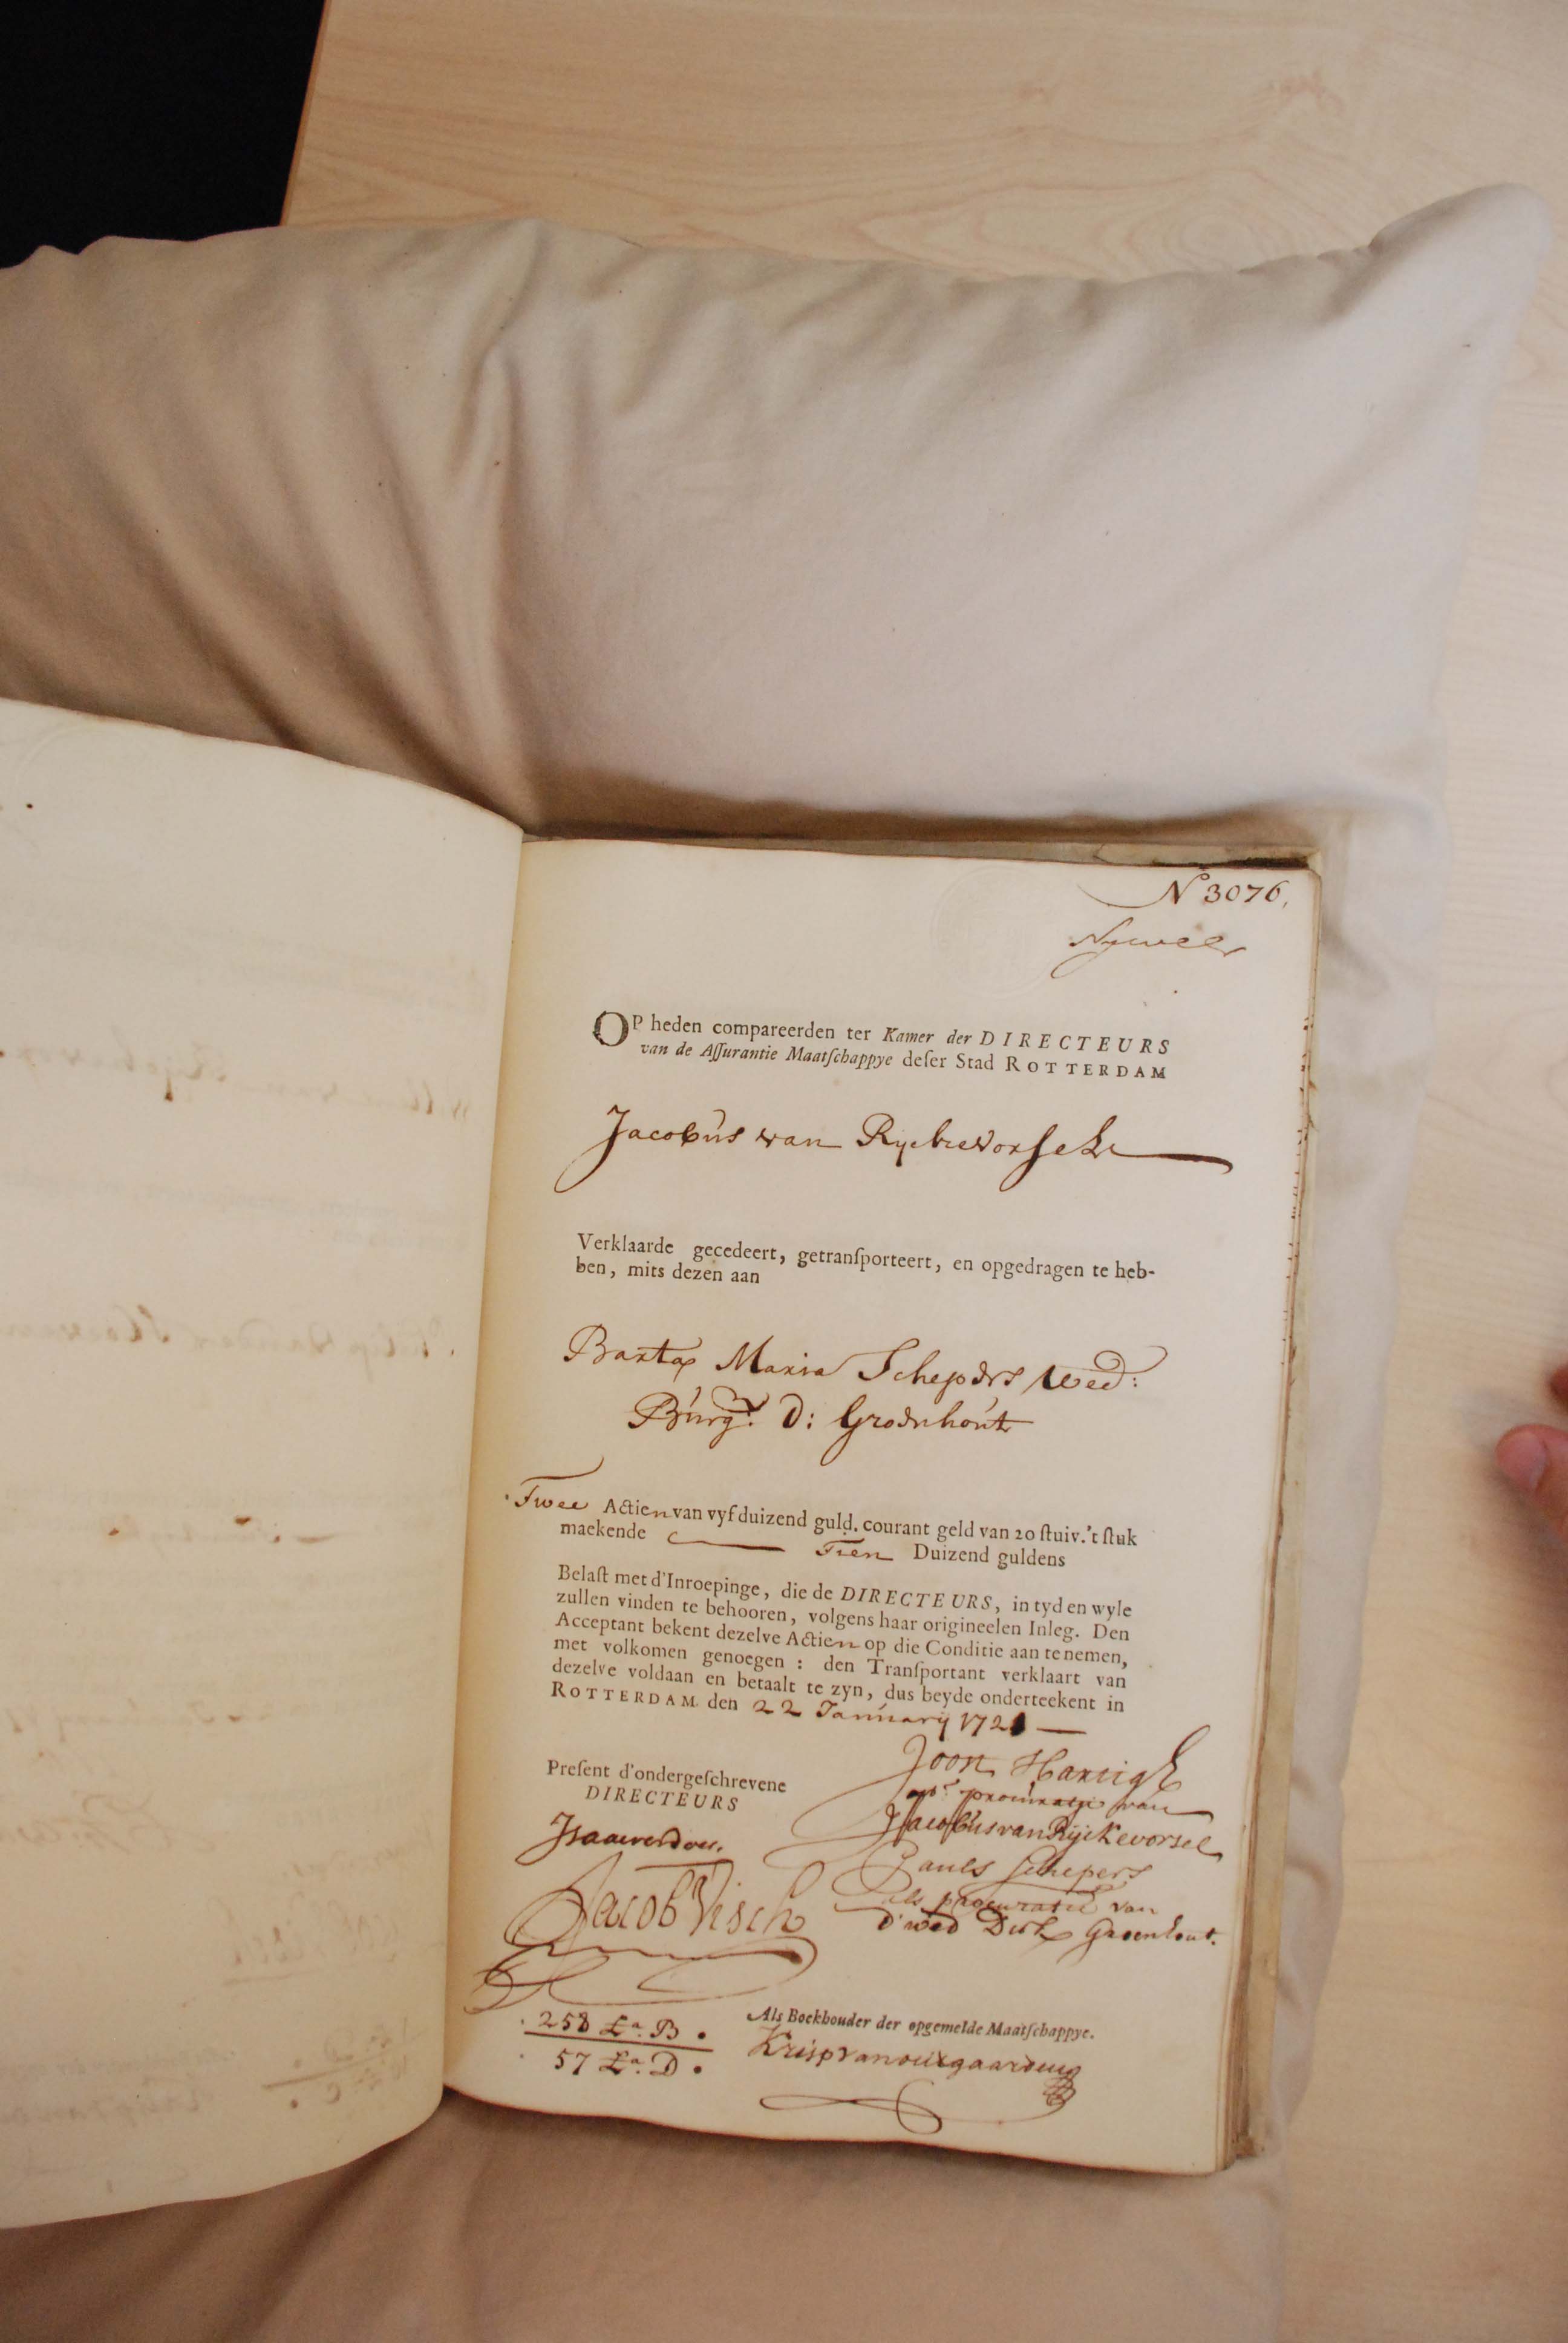 N° 3076,
Nywel
OP heden compareerden ter Kamer der DIRECTEURS
van de Aſſurantie Maatſchappye deſer Stad ROTTERDAM
Jacobus van Ryckevorsel
Verklaarde gecedeert, getranſporteert, en opgedragen te heb-
ben, mits dezen aan
Barta Maria Schepers Wed:
Burgr. D: Groenhout
Twee Actien van vyfduizend guld. courant geld van 20 ſtuiv. 't ſtuk
maekende Tien Duizend guldens
Belaſt met d'Inroepinge, die de DIRECTEURS, in tyd en wyle
zullen vinden te behooren, volgens haar origineelen Inleg. Den
Acceptant bekent dezelve Actien op die Conditie aan te nemen,
met volkomen genoegen : den Tranſportant verklaart van
dezelve voldaan en betaalt te zyn, dus beyde onderteekent in
ROTTERDAM den 22 January 1721
Preſent d'ondergeſchrevene
DIRECTEURS
Joon Hartigh
als procuratie van
Jacobus van Rijckevorsel
Paulus Schepers
als procuratie van
d'wed Dirk Groenhout.
Jacob Visch
258 La. B.
57 La. D.
Als Boekhouder der opgemelde Maatſchappye.